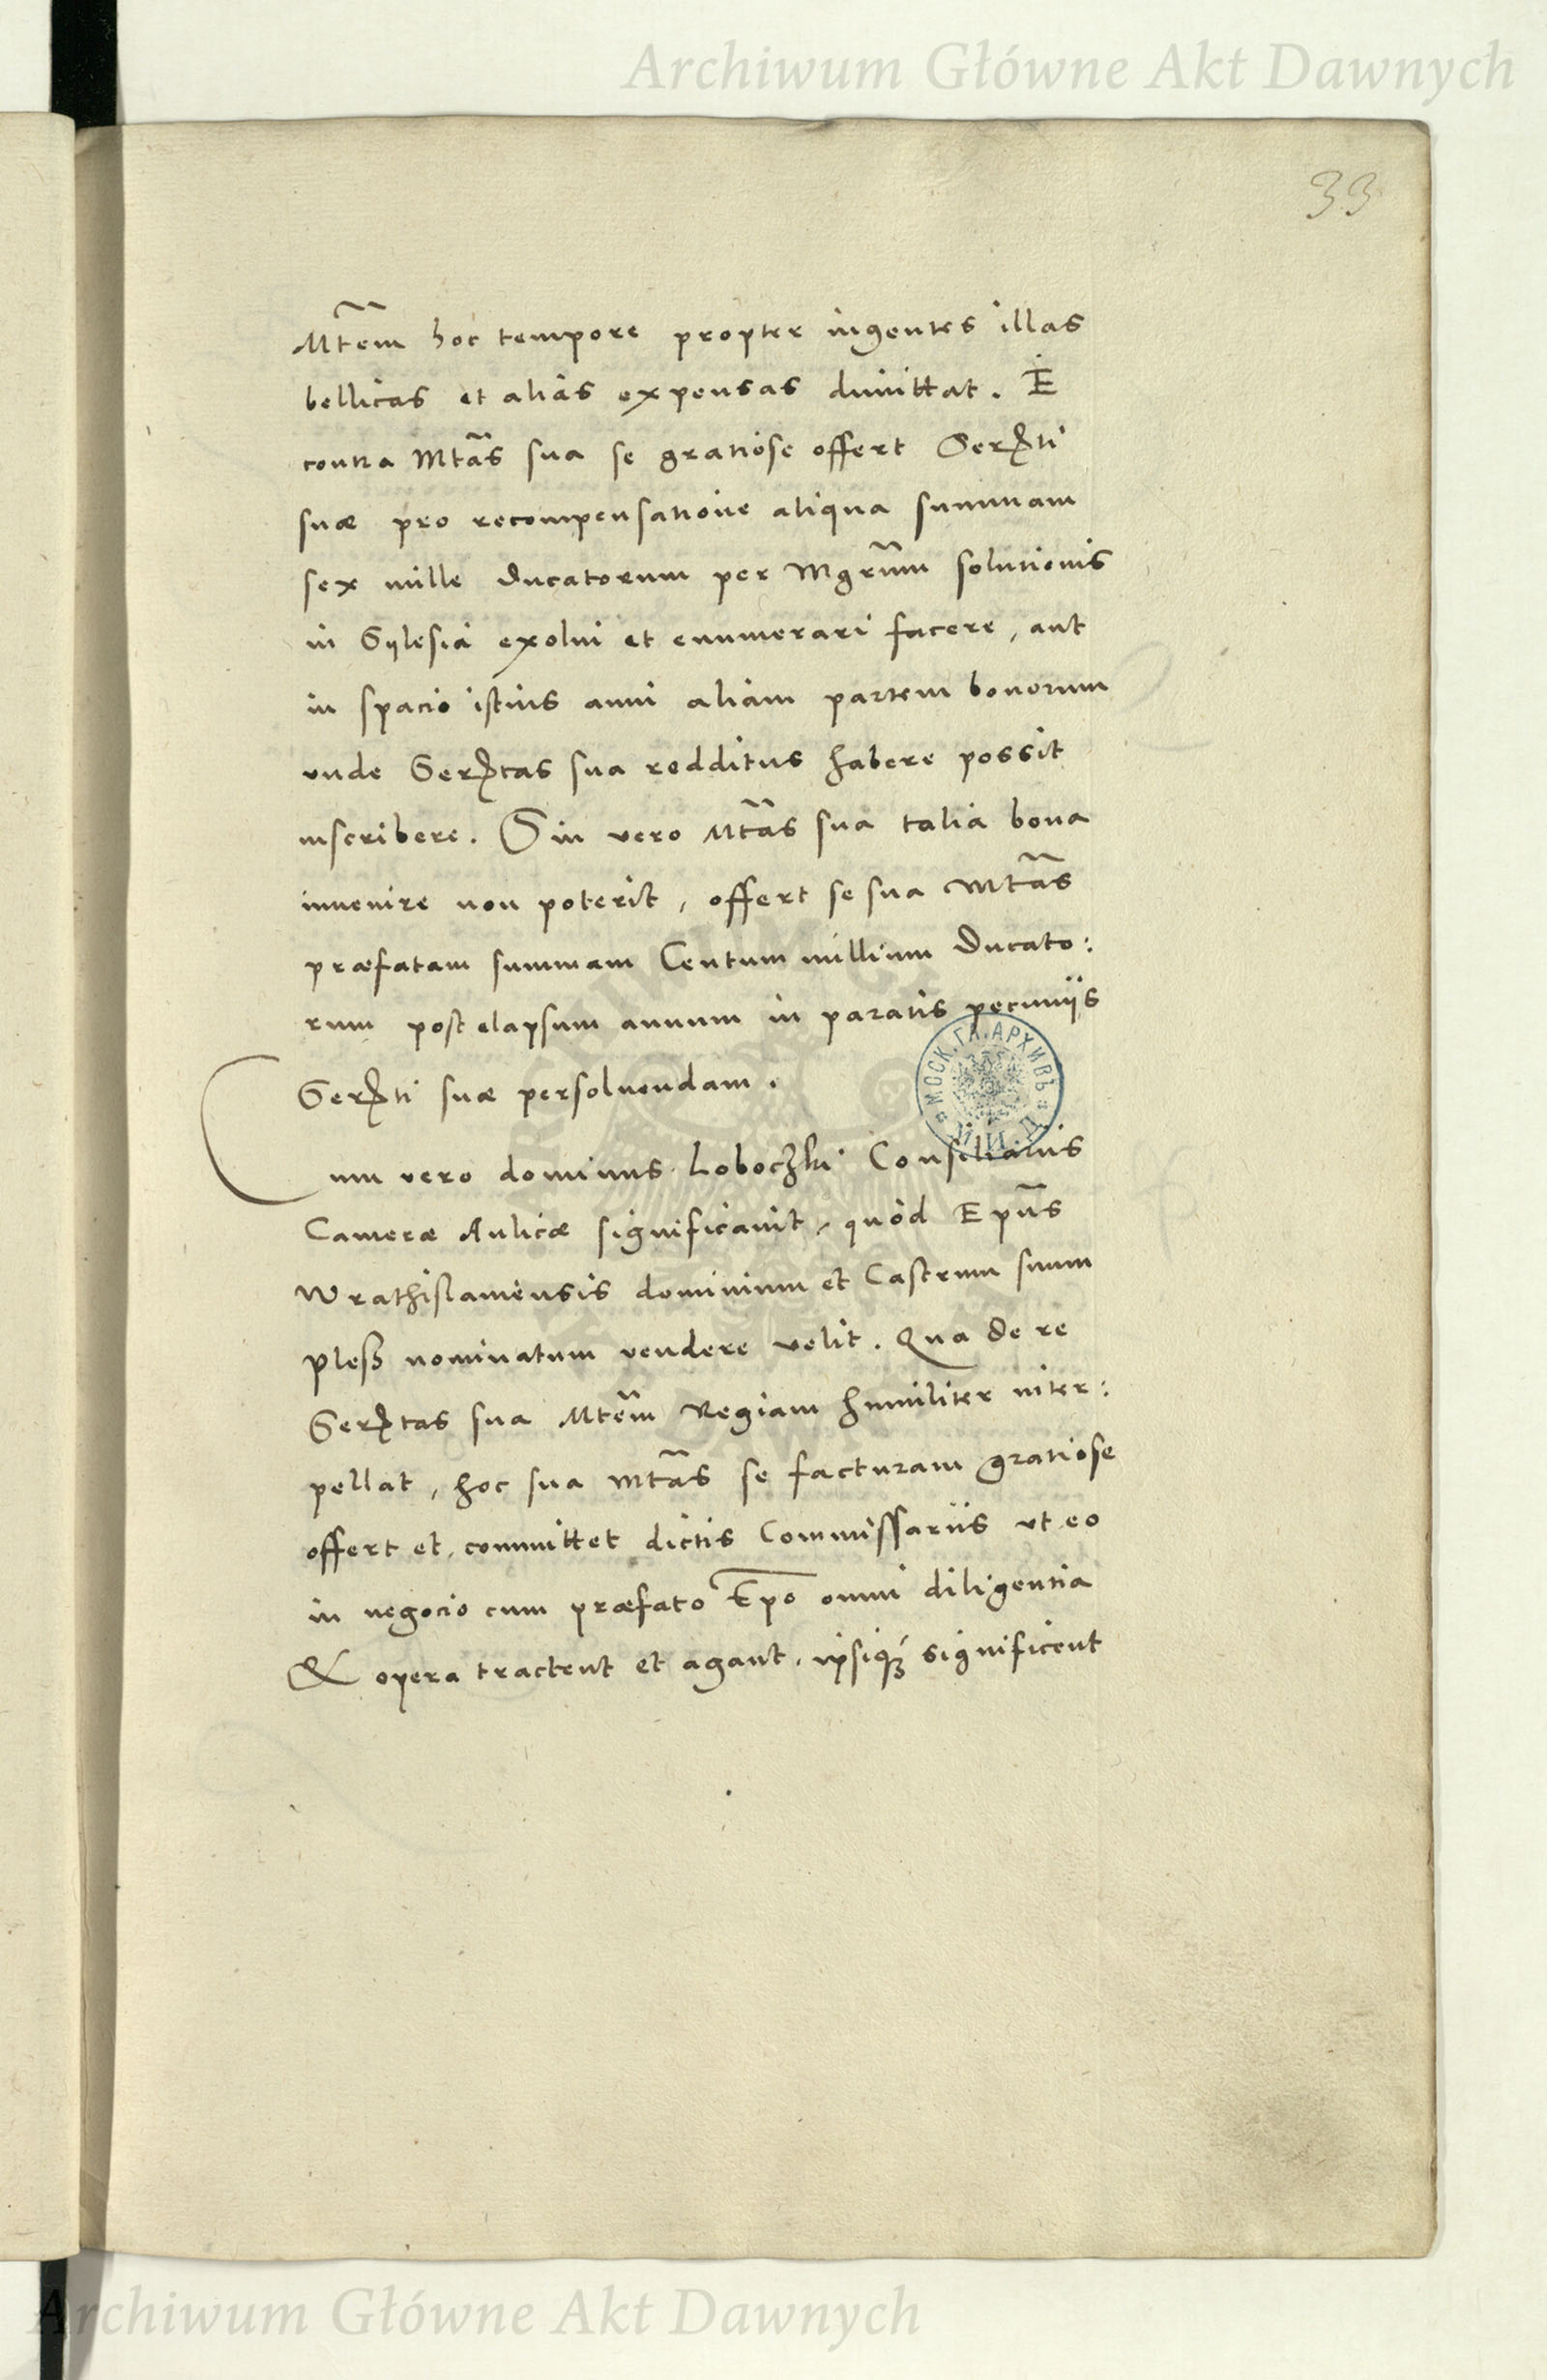 Archiwum Główne Akt Dawnych
33
Mtem hoc tempore propter ingentes illas
bellicas et alias expensas dimittat. E
contra Mtas sua se gratiose offert Serti
suæ pro recompensatione aliqua summam
sex mille Ducatorum per Mgrum solutionis
in Sylesia exolui et enumerari facere, aut
in spacio istius anni aliam partem bonorum
vnde Sertas sua redditus habere possit
inscribere. Sin vero Mtas sua talia bona
inuenire non poterit, offert se sua Mtas
præfatam summam Centum millium Ducato:
rum post elapsum annum in paratis pecuniis
Serti suæ persoluendam.
Cum vero dominus Loboczki Consiliarius
Cameræ Aulicæ significauit, quòd Epus
Wrathislauiensis dominium et Castrum suum
pless nominatum vendere velit. Qua de re
Sertas sua Mtem Regiam humiliter inter:
pellat, hoc sua Mtas se facturam gratiose
offert et, committet dictis Commissariis vt eo
in negocio cum præfato Epo omni diligentia
& opera tractent et agant, ipsiq; significent
МОСК. ГЛ. АРХИВЪ
М. И. Д.
Archiwum Główne Akt Dawnych